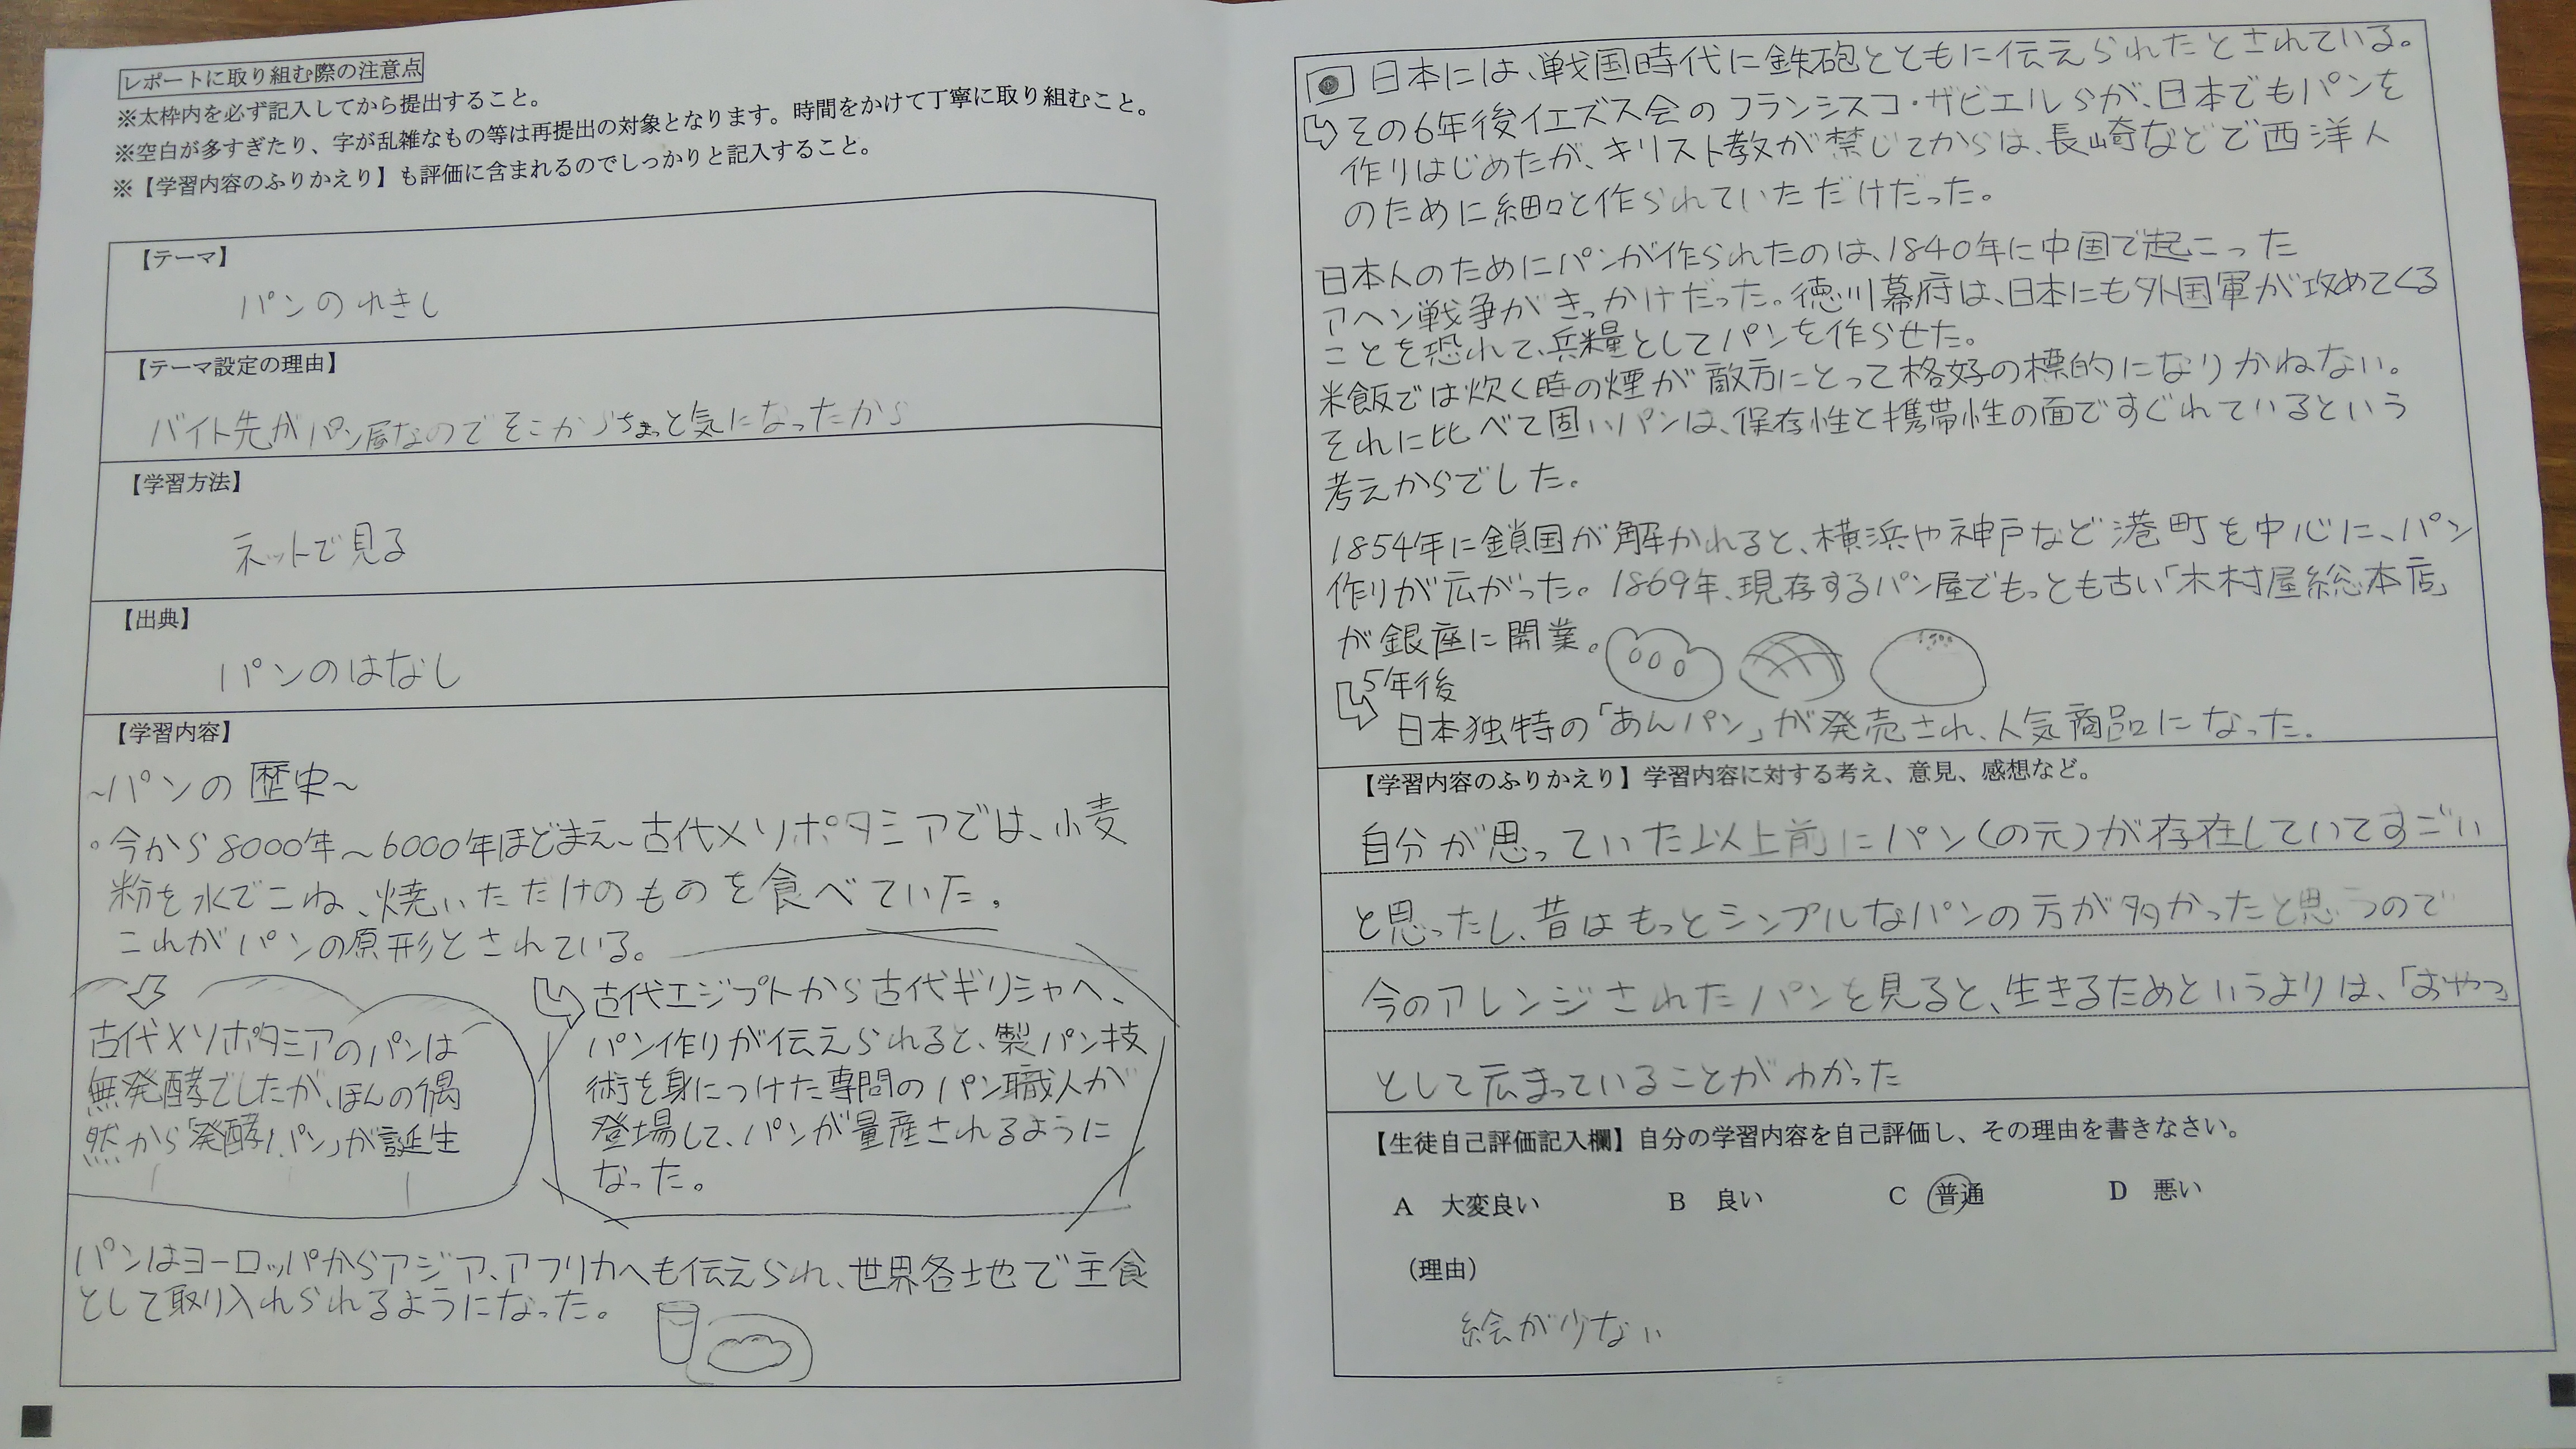 レポートに取り組む際の注意点
※太枠内を必ず記入してから提出すること。
※空白が多すぎたり、字が乱雑なもの等は再提出の対象となります。時間をかけて丁寧に取り組むこと。
※【学習内容のふりかえり】も評価に含まれるのでしっかりと記入すること。
【テーマ】
パンのれきし
【テーマ設定の理由】
バイト先がパン屋なのでそこからちょっと気になったから
【学習方法】
ネットで見る
【出典】
パンのはなし
【学習内容】
~パンの歴史~
・今から8000年～6000年ほどまえ、古代メソポタミアでは、小麦
粉を水でこね、焼いただけのものを食べていた。
これがパンの原形とされている。
古代メソポタミアのパンは
無発酵でしたが、ほんの偶
然から「発酵パン」が誕生
古代エジプトから古代ギリシャへ、
パン作りが伝えられると、製パン技
術を身につけた専門のパン職人が
登場して、パンが量産されるように
なった。
パンはヨーロッパからアジア、アフリカへも伝えられ、世界各地で主食
として取り入れられるようになった。
日本には、戦国時代に鉄砲とともに伝えられたとされている。
その6年後イエズス会のフランシスコ・ザビエルらが、日本でもパンを
作りはじめたが、キリスト教が禁じてからは、長崎などで西洋人
のために細々と作られていただけだった。
日本人のためにパンが作られたのは、1840年に中国で起こった
アヘン戦争がきっかけだった。徳川幕府は、日本にも外国軍が攻めてくる
ことを恐れて、兵糧としてパンを作らせた。
米飯では炊く時の煙が敵方にとって格好の標的になりかねない。
それに比べて固いパンは、保存性と携帯性の面ですぐれているという
考えからでした。
1854年に鎖国が解かれると、横浜や神戸など港町を中心に、パン
作りが広がった。1869年、現存するパン屋でもっとも古い「木村屋総本店」
が銀座に開業。
5年後
日本独特の「あんパン」が発売され、人気商品になった。
【学習内容のふりかえり】学習内容に対する考え、意見、感想など。
自分が思っていた以上前にパン(の元)が存在していてすごい
と思ったし、昔はもっとシンプルなパンの方が多かったと思うので
今のアレンジされたパンを見ると、生きるためというよりは、「おやつ」
として広まっていることがわかった
【生徒自己評価記入欄】自分の学習内容を自己評価し、その理由を書きなさい。
A 大変良い B 良い C 普通 D 悪い
（理由）
絵が少ない